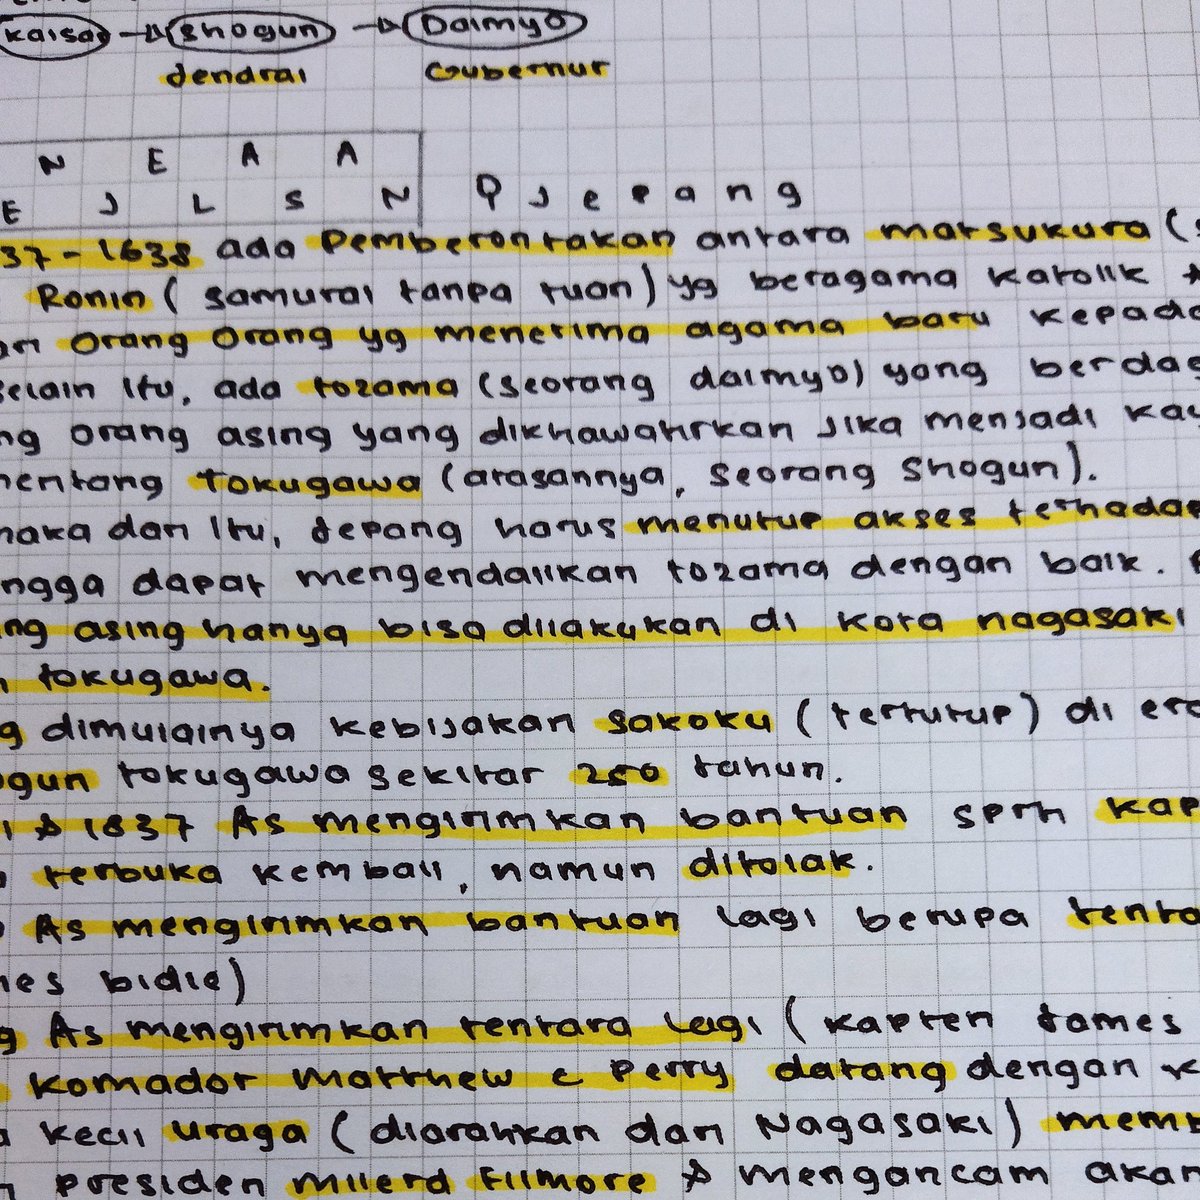 kaisar → shogun → Daimyo
Jendral Gubernur
N E A A
E J L S N @ J e p a n g
37-1638 ada Pemberontakan antara matsukura (
Ronin (samurai tanpa tuan) yg beragama katolik
an orang orang yg menerima agama baru kepada
selain itu, ada tozama (seorang daimyo) yang berdag
ng orang asing yang dikhawahrkan jika menjadi ka
nentang tokugawa (atasannya, seorang shogun).
maka dari itu, Jepang harus menutup akses terhadap
ngga dapat mengendalikan tozama dengan baik.
ng asing hanya bisa diilakukan di kota nagasaki
n tokugawa.
g dimulainya kebijakan sakoku (tertutup) di era
ogun tokugawa sekitar 250 tahun.
i 1837 As mengirimkan bantuan sprti kap
terbuka kembali, namun ditolak.
As mengirimkan bantuan lagi berupa tenta
mes bidle)
g As mengirimkan tentara lagi (kapten James
komador matthew c perry datang dengan k
a kecil uraga (diarahkan dari Nagasaki) mem
n presiden millerd fillmore & mengancam akan